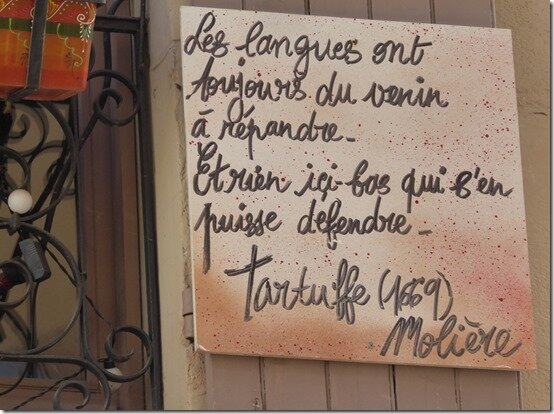 Les langues ont
toujours du venin
à répandre -
Et rien içi-bas qui s'en
puisse défendre -
Tartuffe (1669)
Molière